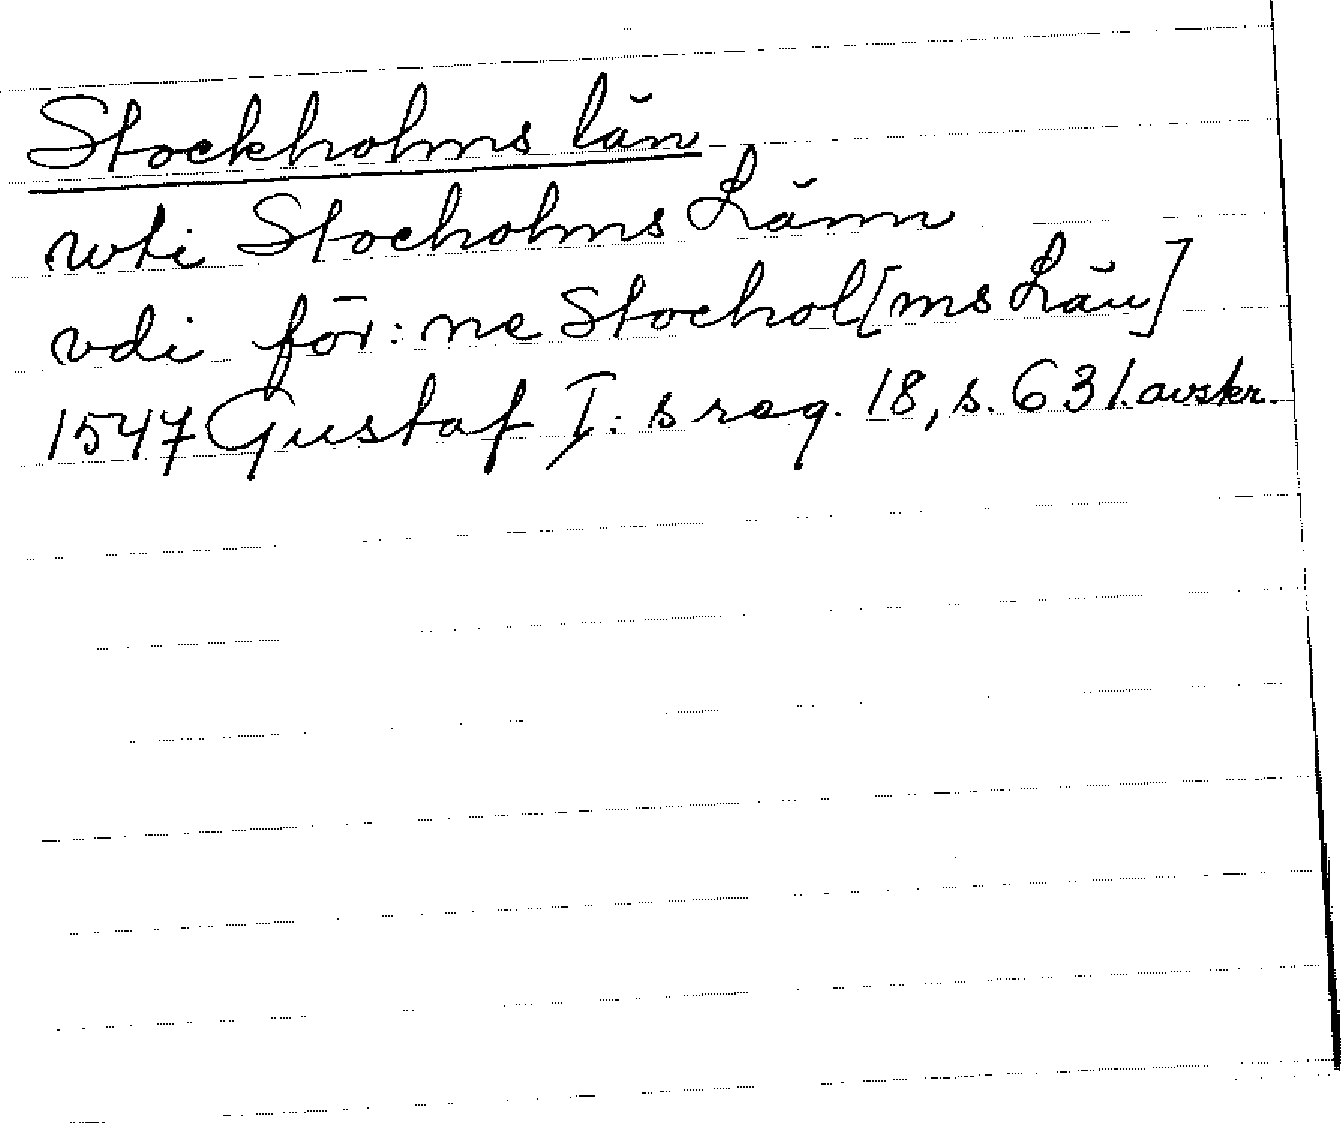 Stockholms län
wti Stocholms Länn
vdi för: ne Stochol[ms Län]
1547 Gustaf I: s reg. 18, s. 631. avskr.